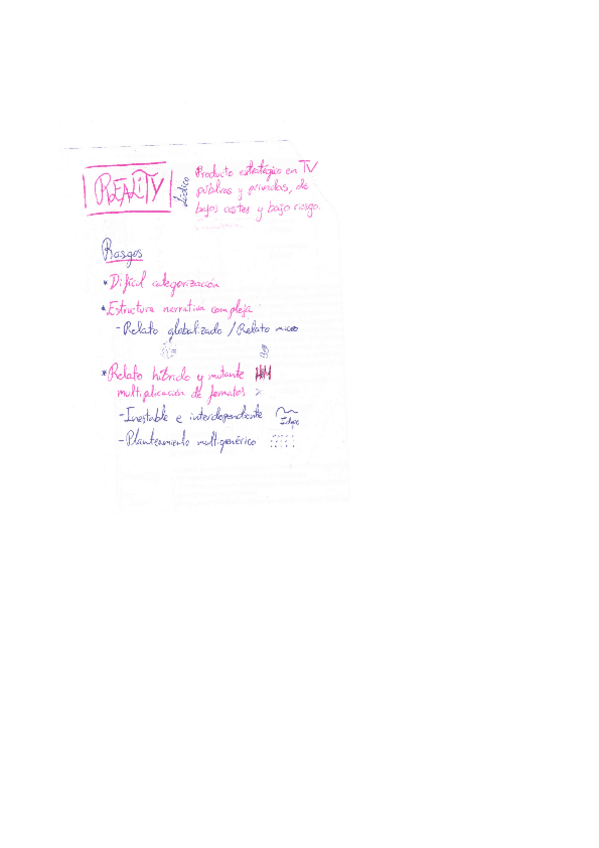 REALITY
Lúdico
Producto estratégico en TV
públicas y privadas, de
bajos costes y bajo riesgo.
Rasgos
* Difícil categorización
* Estructura narrativa compleja
- Relato globalizado / Relato micro
* Relato híbrido y mutante HM
multiplicación de formatos x
- Inestable e interdependiente
- Planteamiento multigenérico